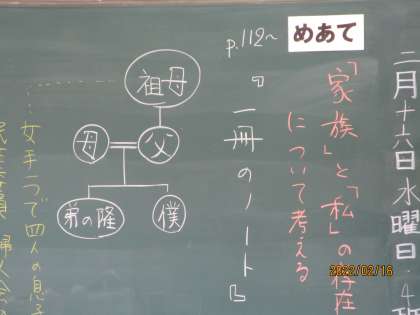 二月十六日水曜日・4
めあて
「家族」と「私」の存在
について考える
p.112〜
『一冊のノート』
祖母
母
父
弟の隆
僕
女手一つで四人の息子
民生委員 婦人会の
2022/02/16